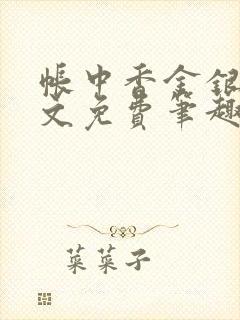 帐中香金银
文免费笔趣
菜菜子